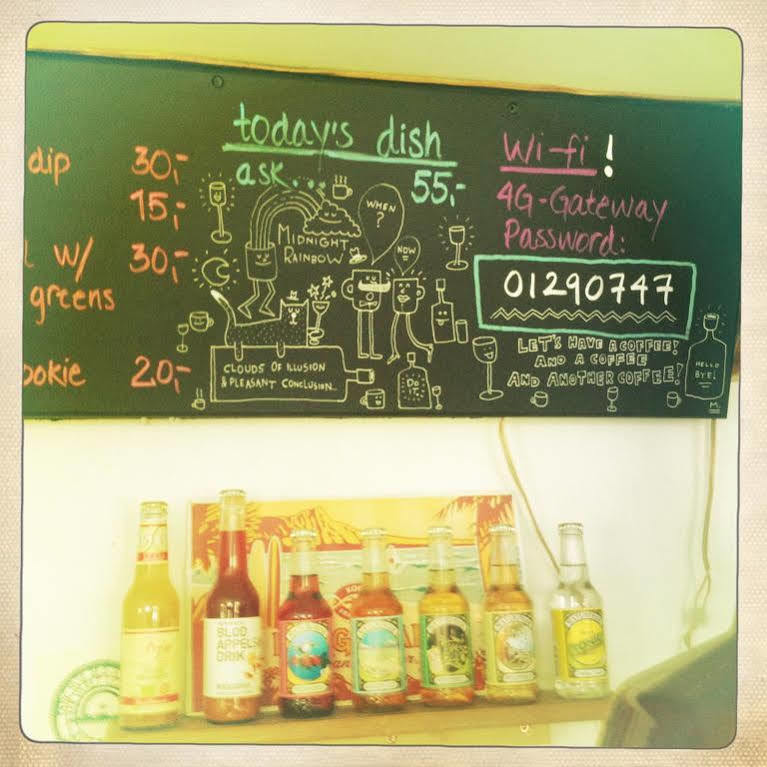 today's dish
ask... 55,-
dip 30,-
15,-
w/ 30,-
greens
ookie 20,-
WHEN?
NOW
MIDNIGHT
RAINBOW
CLOUDS OF ILLUSION
& PLEASANT CONCLUSION...
DO
IT!
Wi-fi!
4G-Gateway
Password:
01290747
LET'S HAVE A COFFEE!
AND A COFFEE
AND ANOTHER COFFEE!
HELLO
BYE!
M.
BLOD
APPELSIN
DRIK